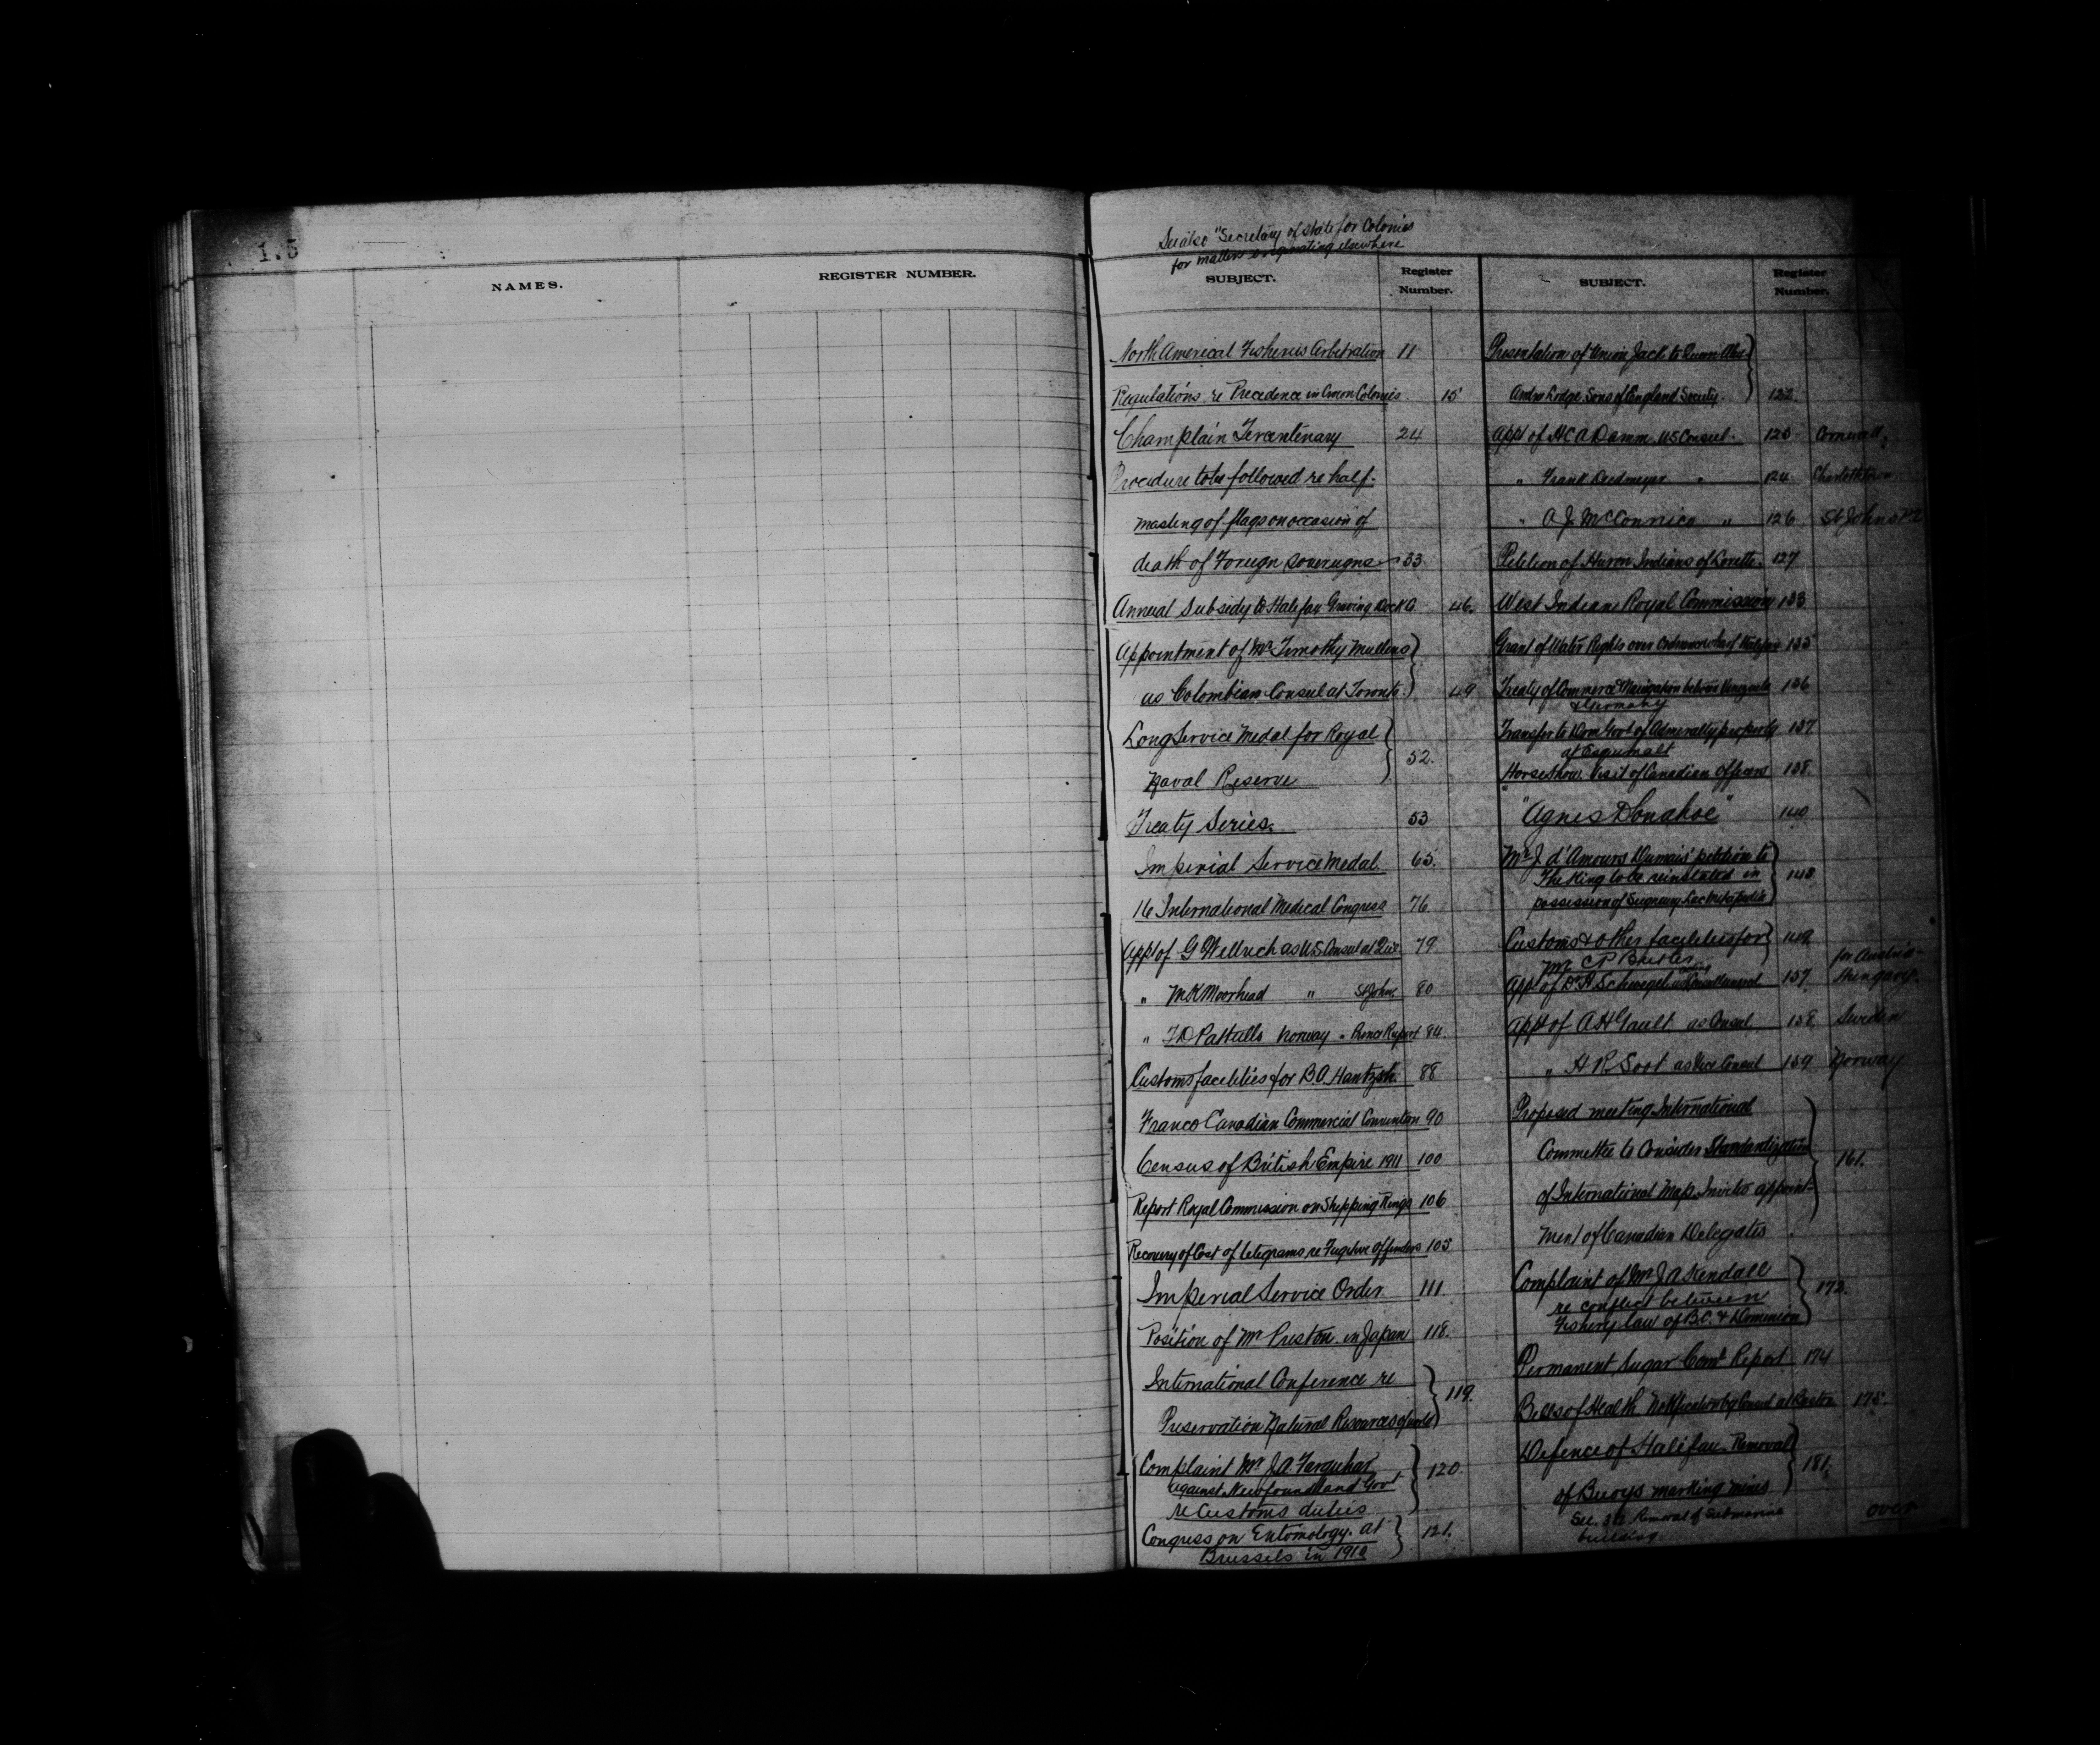 1.5
NAMES.
REGISTER NUMBER.
See also "Secretary of State for Colonies
for matters originating elsewhere
SUBJECT.
Register Number.
North American Fisheries Arbitration 11
Regulations re Precedence in Crown Colonies. 15
Champlain Tercentenary 24
Procedure to be followed re half-
masting of flags on occasion of
death of Foreign Sovereigns 33
Annual Subsidy to Halifax Graving Dock 46.
Appointment of Mr Timothy Mullins
as Colombian Consul at Toronto. 49
Long Service Medal for Royal
Naval Reserve 52.
Treaty Series. 53
Imperial Service Medal 65.
16 International Medical Congress 76
App of G Willrich as US Consul at 79
" M K Moorhead " St John 80
" T D Pattullo Norway " Prince Rupert 84.
Customs facilities for B.A. Hantzsh. 88
Franco Canadian Commercial Convention 90
Census of British Empire 1911 100
Report Royal Commission on Shipping Rings 106
Recovery of Cost of telegrams re Fugitive Offenders 105
Imperial Service Order 111.
Position of Mr Preston in Japan 118.
International Conference re
Preservation Natural Resources of world 119.
Complaint Mr J A Farquhar
against Newfoundland Govt
re Customs duties 120
Congress on Entomology at
Brussels in 1910 121.
SUBJECT.
Register Number.
Presentation of Union Jack to Queen Alexandra
Lodge Sons of England Society. 122.
App of H C A Damm US Consul. 123 Cornwall.
" Frank Deedmeyer " 124 Charlottetown
" A J McConnico " 126 St Johns PQ
Petition of Huron Indians of Lorette. 127
West Indian Royal Commission 133
Grant of Water Rights over Ordnance Wharf Halifax 135
Treaty of Commerce & Navigation between Venezuela 136
& Germany
Transfer to Dom Govt of Admiralty property 137
at Esquimalt
Horse Show. Visit of Canadian officers 138.
"Agnes Donahoe" 140
Mr J. d'Amours Dumais' petition to
The King to be reinstated in
possession of Seigneury Lac Metapedia 148
Customs & other facilities for 149
Mr C P
App of Dr H Schwegel as acting Consul General 157 for Austria-Hungary.
App of A H Gault as Consul 158 Sweden
" H R Soot as Vice Consul 159 Norway
Proposed meeting International
Committee to Consider Standardization
of International Map. Invites appoint-
ment of Canadian Delegates 161.
Complaint of Mr J A Kendall
re conflict between
Fishery law of B.C. & Dominion 172.
Permanent Sugar Comt Report 174
Bills of Health Notification by Consul at Boston 175.
Defence of Halifax. Removal
of Buoys marking mines 181.
See Removal of Submarine
building.
over